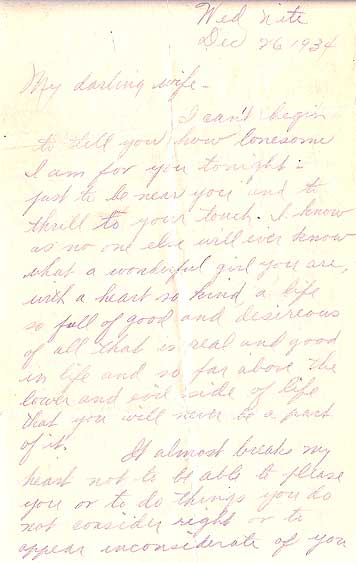 Wed nite
Dec 26 1934
My darling wife -
I can't begin
to tell you how lonesome
I am for you tonight -
just to be near you and to
thrill to your touch. I know
as no one else will ever know
what a wonderful girl you are,
with a heart so kind, a life
so full of good and desireous
of all that is real and good
in life and so far above the
lower and evil side of life
that you will never be a part
of it. It almost breaks my
heart not to be able to please
you or to do things you do
not consider right or to
appear inconsiderate of you